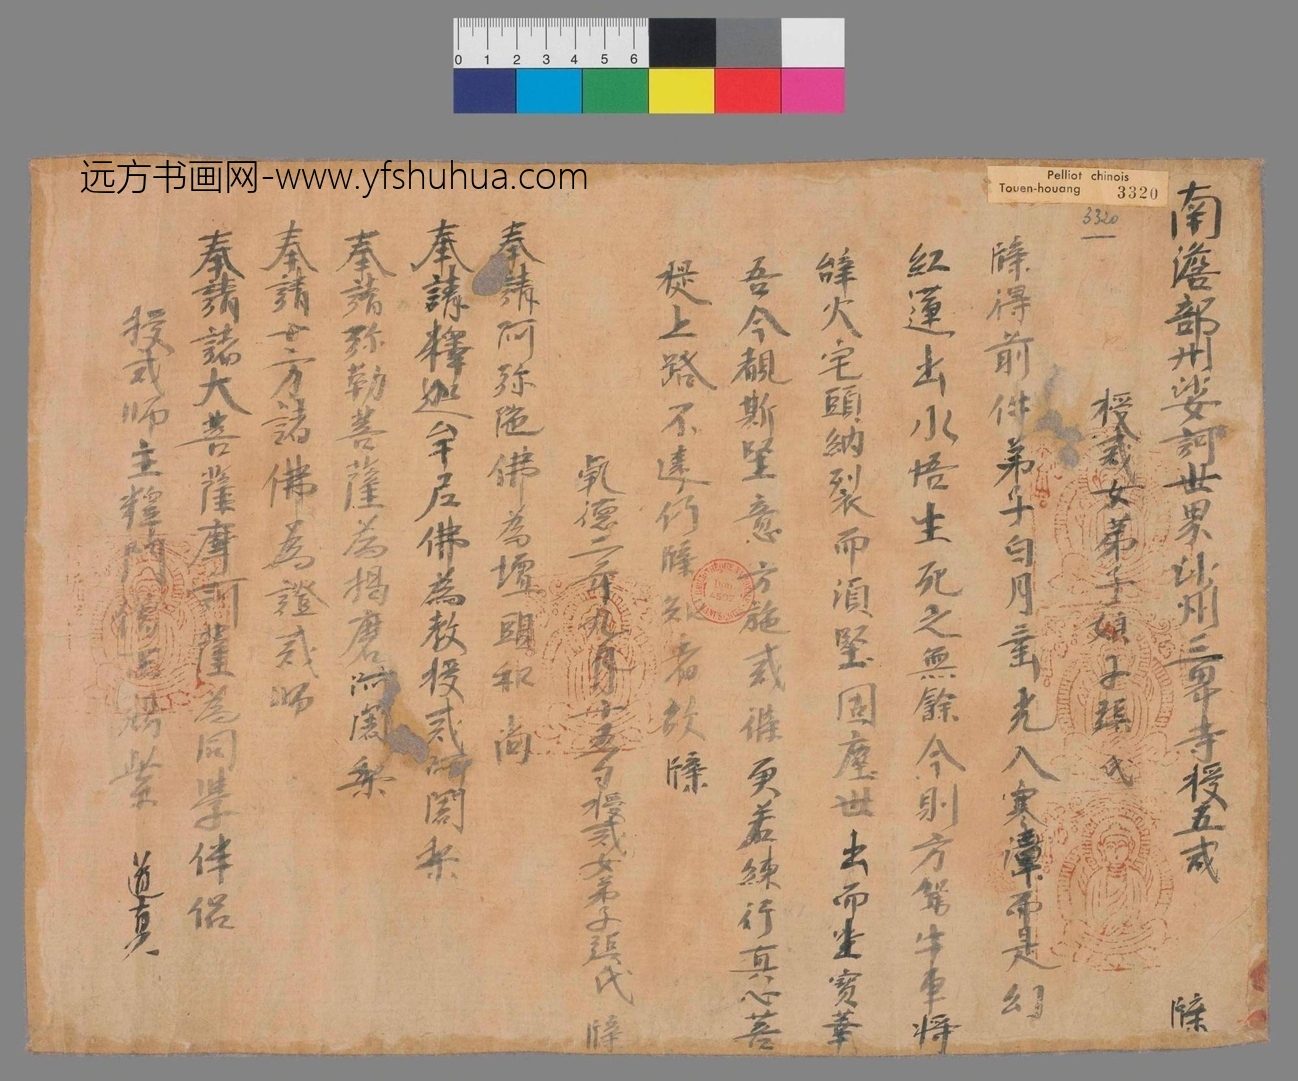 0 1 2 3 4 5 6
远方书画网-www.yfshuhua.com
Pelliot chinois
Touen-houang 3320
3320
南澹部州娑訶世界沙州三界寺授五戒 牒
授戒女弟子娘子張氏
牒得前件弟子白月垂光入寒潭而是幻
紅蓮出水悟生死之無餘今則方駕牛車將
辞火宅頭納裂而須堅固塵世出而坐寶華
吾今覩斯堅意方施戒條更若練行真心菩
提上路不遠行牒知者故牒
乹德二年九月十五日授戒女弟子張氏 牒
奉請阿弥陁佛為壇頭和尚
奉請釋迦牟尼佛為教授戒師阿闍梨
奉請弥勒菩薩為羯磨阿闍梨
奉請十方諸佛為證戒師
奉請諸大菩薩摩訶薩為同學伴侣
授戒師主釋門賜紫 道真